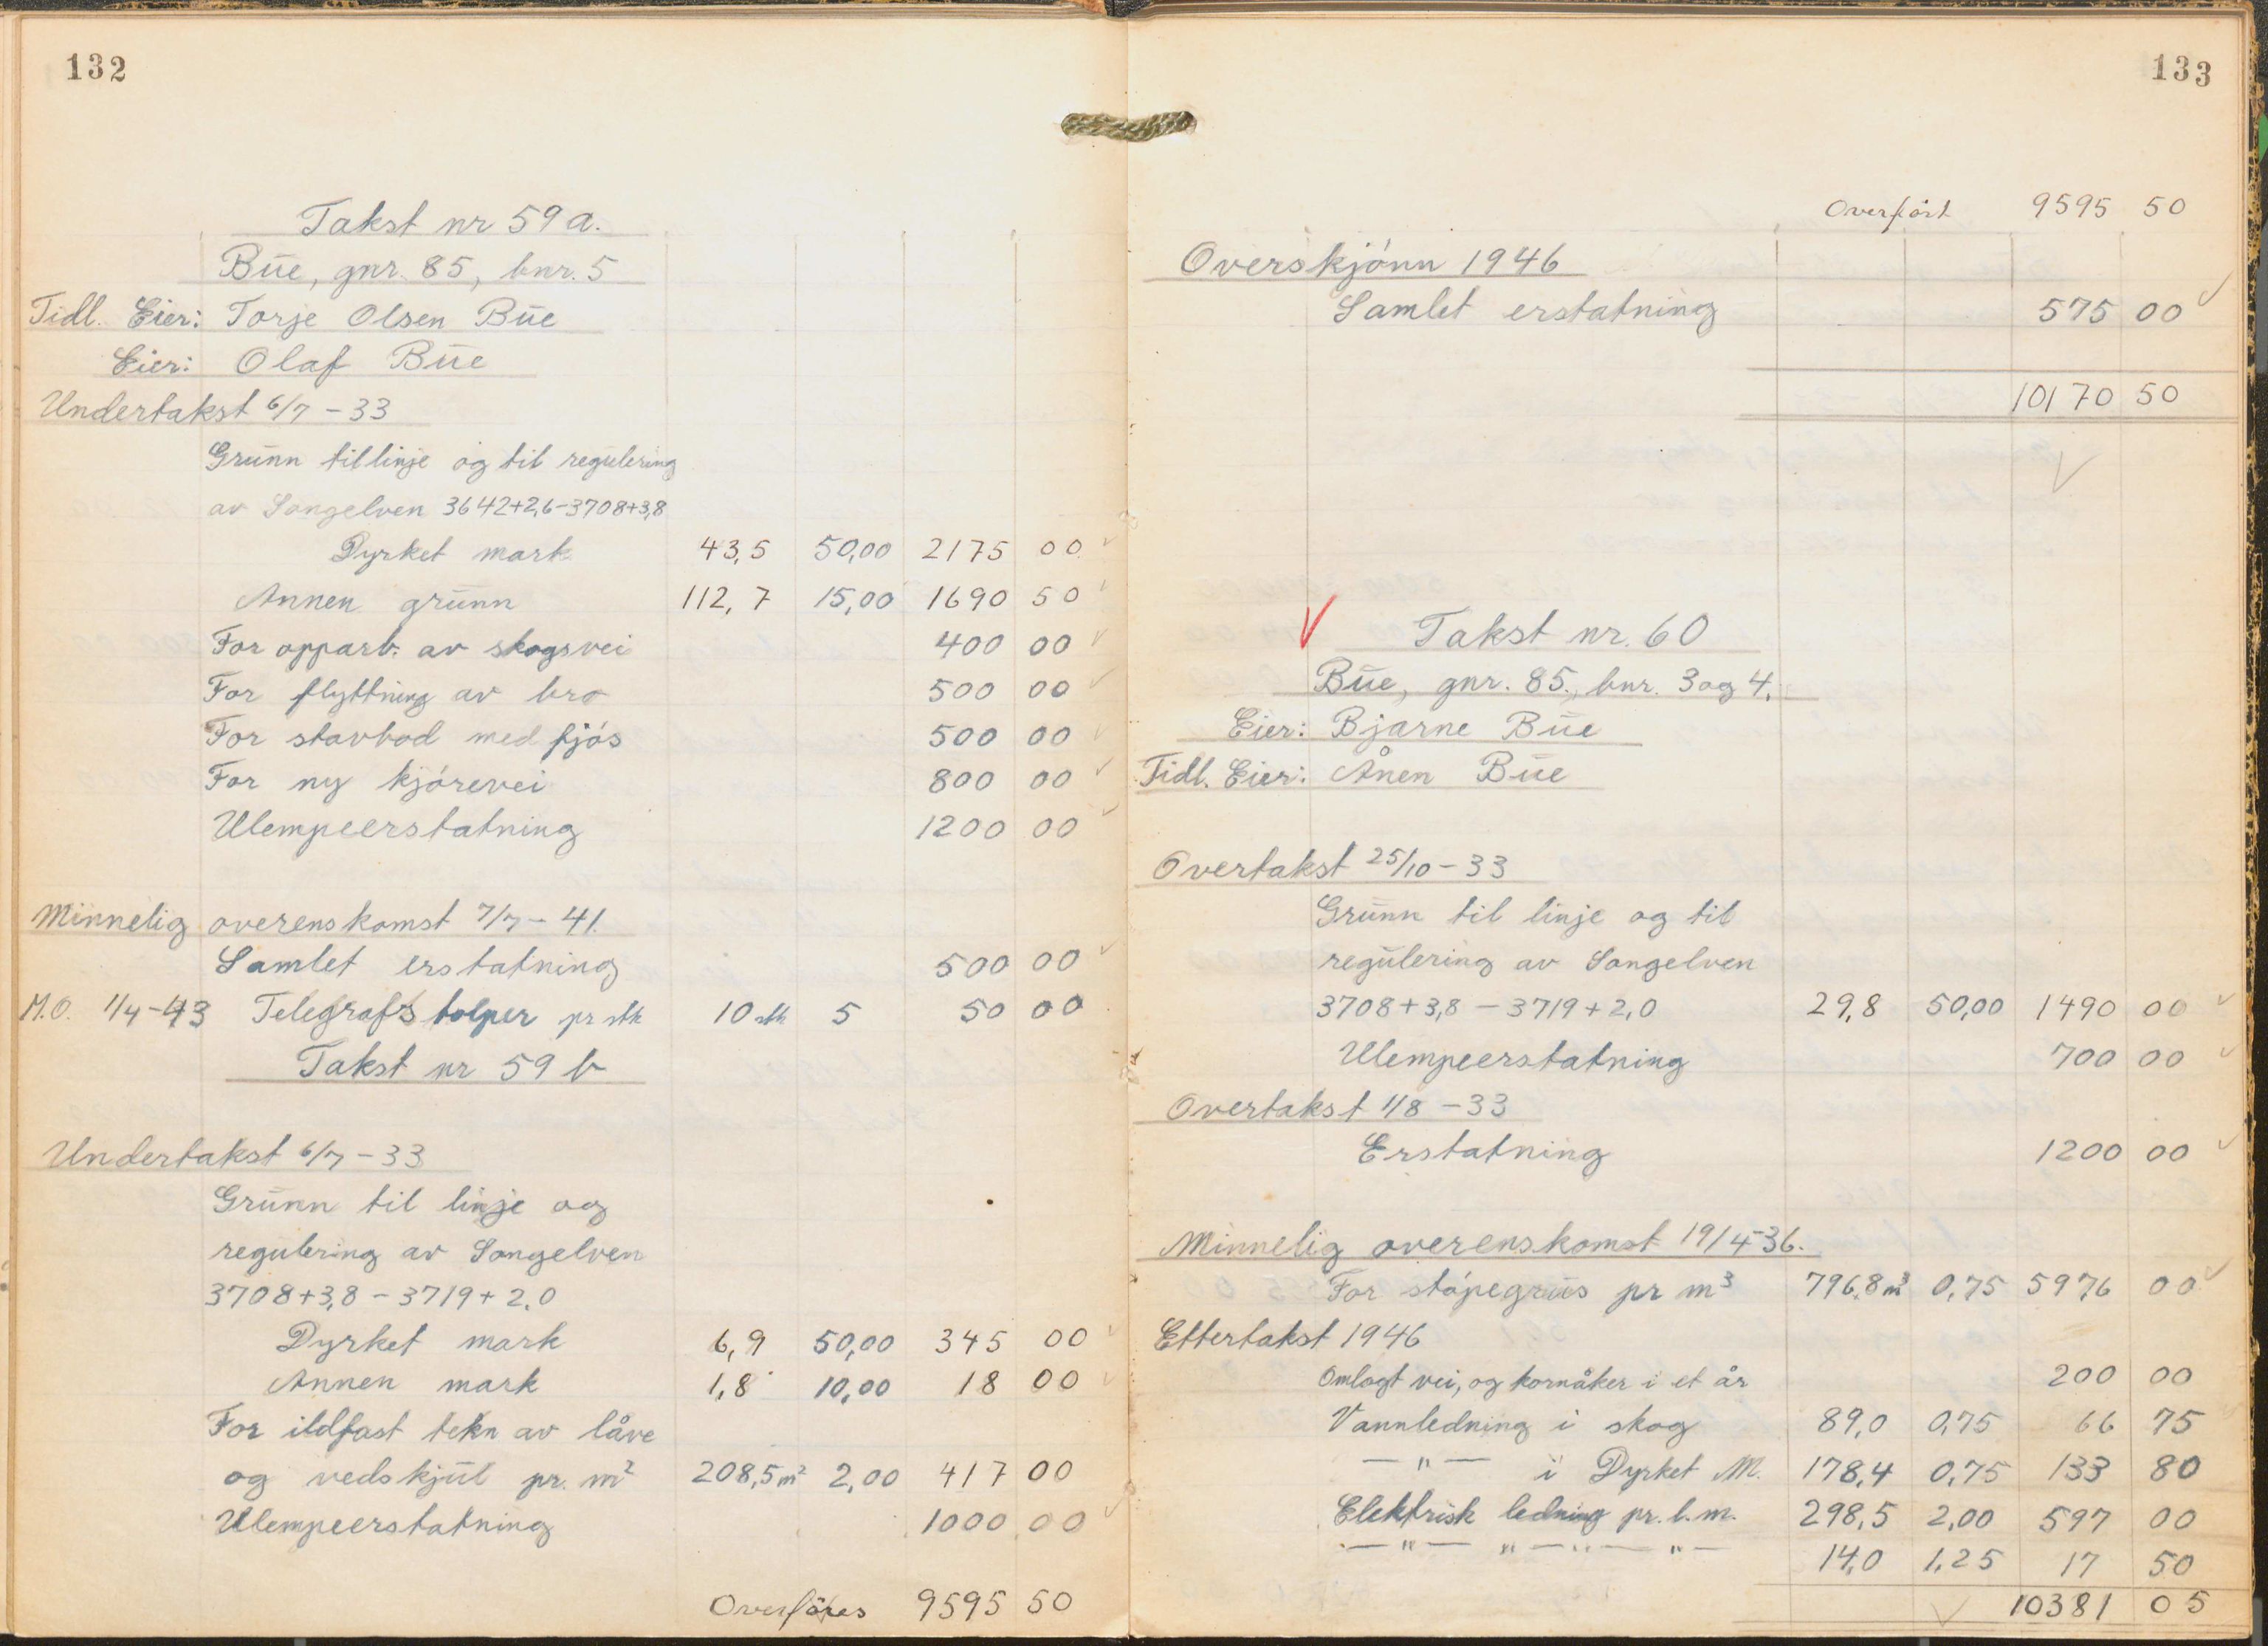 132
Takst nr 59 a.
Bue, gnr. 85, bnr. 5
Tidl. Eier: Torje Olsen Bue
Eier: Olaf Bue
Undertakst 6/7 - 33
Grunn til linje og til regulering
av Songelven 3642+2,6-3708+3,8
Dyrket mark 43,5 50,00 2175 00
Annen grunn 112,7 15,00 1690 50
For opparb. av skogsvei 400 00
For flyttning av bro 500 00
For stavbod med fjós 500 00
For ny kjórevei 800 00
Ulempeerstatning 1200 00
Minnelig overenskomst 7/7 - 41.
Samlet erstatning 500 00
M.O. 1/4-43 Telegrafstolper pr stk 10 stk 5 50 00
Takst nr 59 b
Undertakst 6/7 - 33
Grunn til linje og
regulering av Songelven
3708+3,8 - 3719+2,0
Dyrket mark 6,9 50,00 345 00
Annen mark 1,8 10,00 18 00
For ildfast tekn av låve
og vedskjul pr. m² 208,5 m² 2,00 417 00
Ulempeerstatning 1000 00
Overføres 9595 50
133
Overført 9595 50
Overskjónn 1946
Samlet erstatning 575 00
10170 50
Takst nr. 60
Bue, gnr. 85., bnr. 3 og 4.
Eier: Bjarne Bue
Tidl. Eier: Ånen Bue
Overtakst 25/10 - 33
Grunn til linje og til
regulering av Songelven
3708+3,8 - 3719+2,0 29,8 50,00 1490 00
Ulempeerstatning 700 00
Overtakst 1/8 - 33
Erstatning 1200 00
Minnelig overenskomst 19/4-36.
For stópegrus pr m³ 796,8 m³ 0,75 5976 00
Ettertakst 1946
Omlagt vei, og kornåker i et år 200 00
Vannledning i skog 89,0 0,75 66 75
— " — i Dyrket M. 178,4 0,75 133 80
Elektrisk ledning pr. l. m. 298,5 2,00 597 00
— " — " — " — " — 14,0 1,25 17 50
10381 05